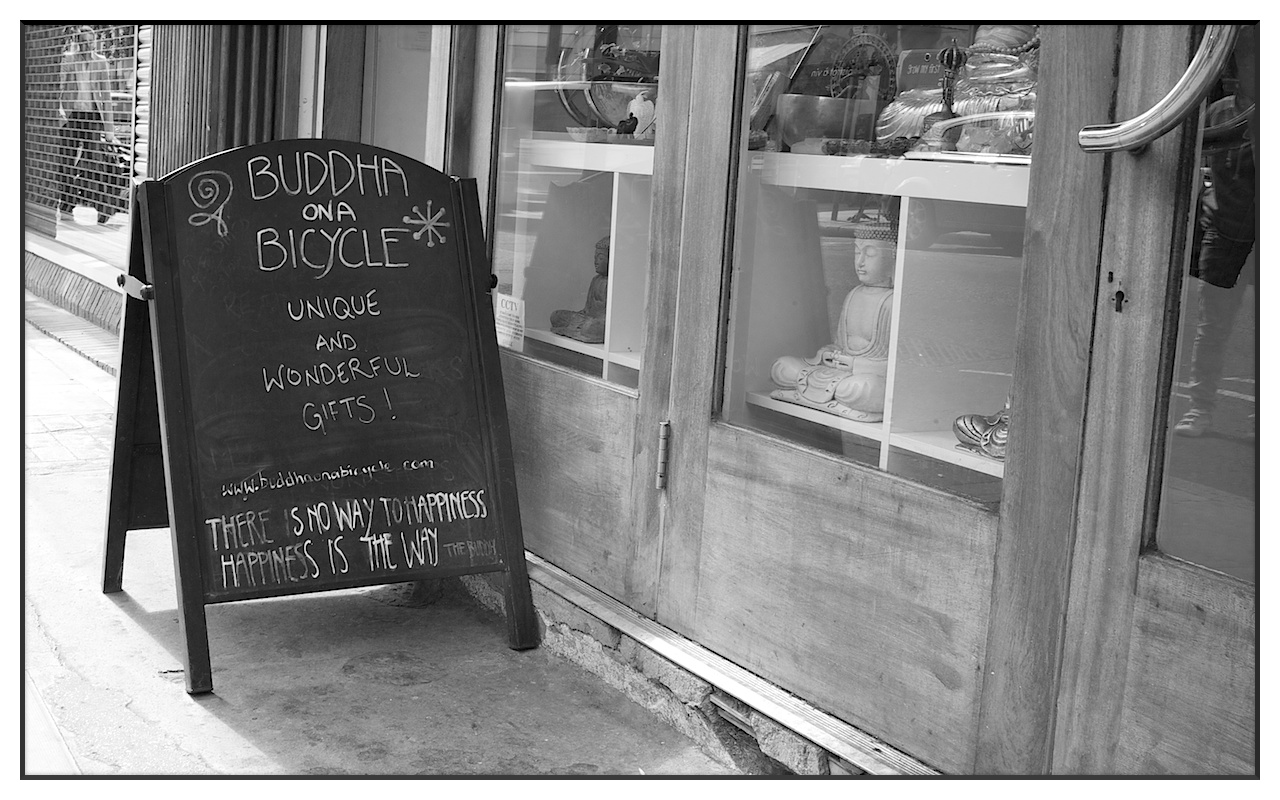 BUDDHA
ON A
BICYCLE
UNIQUE
AND
WONDERFUL
GIFTS!
www.buddhaonabicycle.com
THERE IS NO WAY TO HAPPINESS
HAPPINESS IS THE WAY THE BUDDHA
CCTV